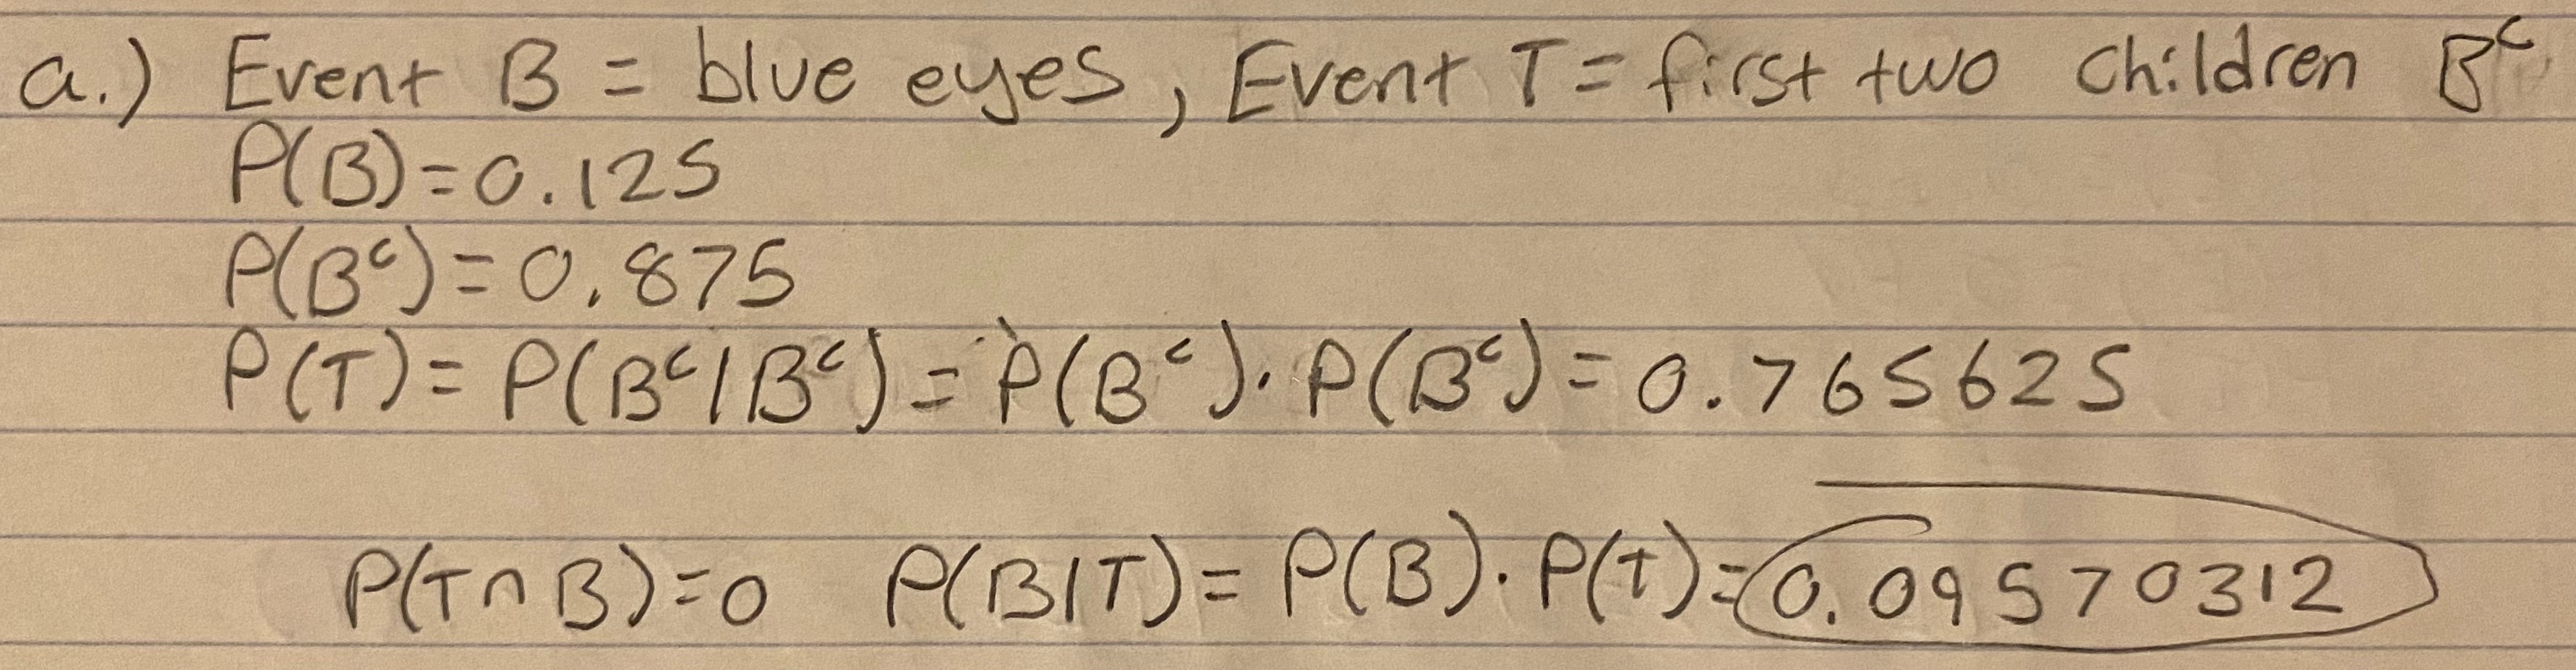 a.) Event B = blue eyes, Event T = first two children Bᶜ
P(B)=0.125
P(Bᶜ)=0.875
P(T)= P(Bᶜ|Bᶜ)= P(Bᶜ)·P(Bᶜ)=0.765625
P(T∩B)=0 P(B|T)= P(B)·P(t)=0.09570312